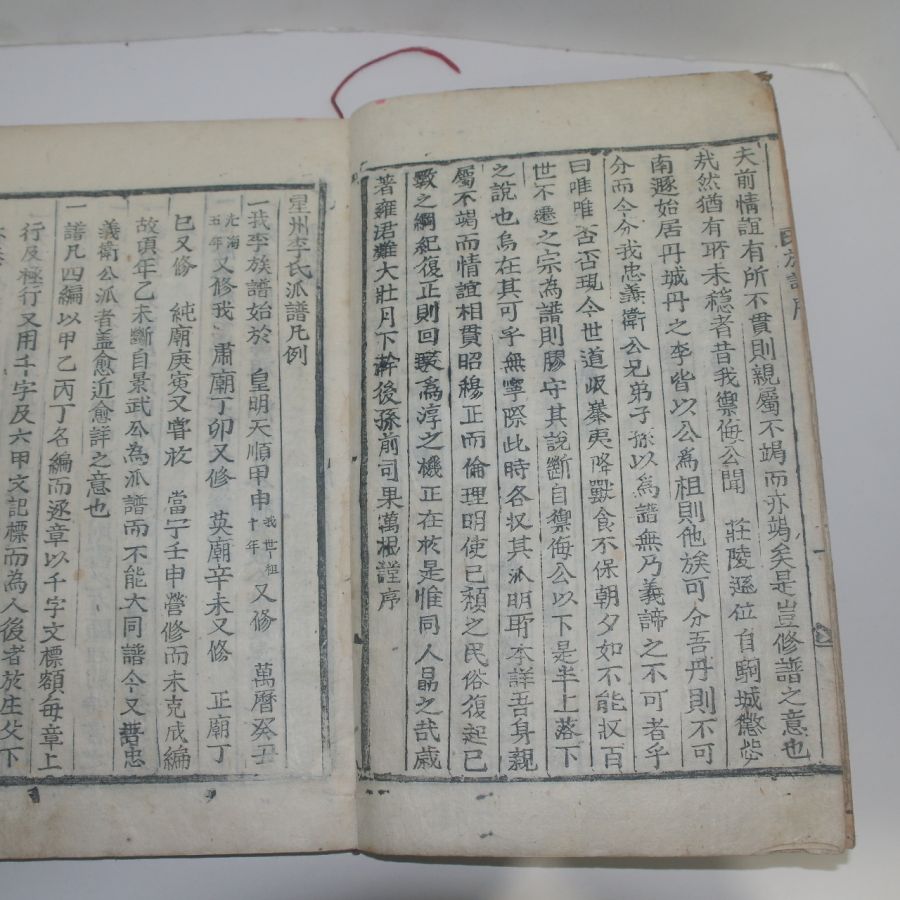 夫前情誼有所不貫則親屬不竭而亦竭矣是豈修譜之意也
㢤然猶有所未穩者昔我禦侮公聞 莊陵遜位自駒城
南遯始居丹城丹之李皆以公爲祖則他族可分吾丹則不可
分而今分我忠義衛公兄弟子孫以爲譜無乃義諦之不可者乎
曰唯唯否否現今世道岐 夷 戰食不保朝夕如不能收百
世不遷之宗為譜則膠守其說斷自禦侮公以下是半上落下
之說也烏在其可乎無寧際此時各收其派明所李詳吾身親
屬不竭而情誼相貫昭穆正而倫理明使已頹之民俗復起已
斁之綱紀復正則回 爲淳之機正在於是惟同人勗之哉歲
著雍涒灘大壯月下澣後孫前司果萬根謹序
星州李氏派譜凡例
一我李族譜始於 皇明天順甲申我世祖十年又修 萬曆癸丑
光海五年又修我 肅廟丁卯又修 英廟辛未又修 正廟丁
巳又修 純廟庚寅又嘗於 當宁壬申營修而未克成編
故頃年乙未斷自景武公為派譜而不能大同譜今又 忠
義衛公派者盖愈近愈詳之意也
一譜凡四編以甲乙丙丁名編而逐章以千字文標額每章上
行及極行又用千字及六甲文記標而為人後者於生父下